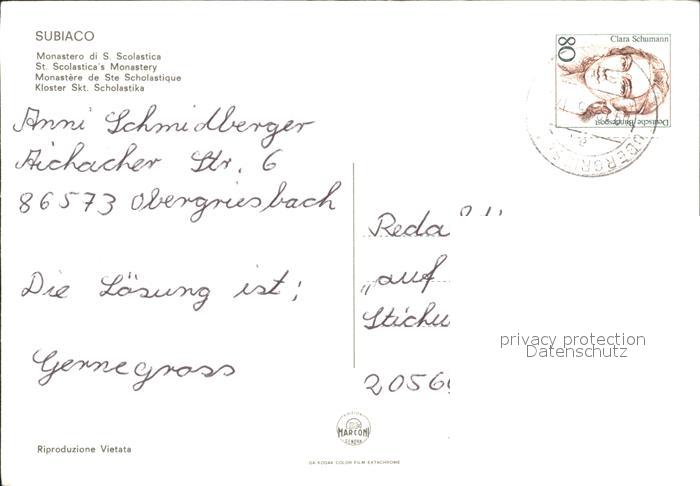 SUBIACO
Monastero di S. Scolastica
St. Scolastica's Monastery
Monastère de Ste Scholastique
Kloster Skt. Scholastika
80
Clara Schumann
Deutsche Bundespost
Anni Schmidberger
Aichacher Str. 6
86573 Obergriesbach
Die Lösung ist;
Gernegross
Reda
„auf
Stichu
2056
privacy protection
Datenschutz
MARCONI
GENOVA
Riproduzione Vietata
DA KODAK COLOR FILM EKTACHROME